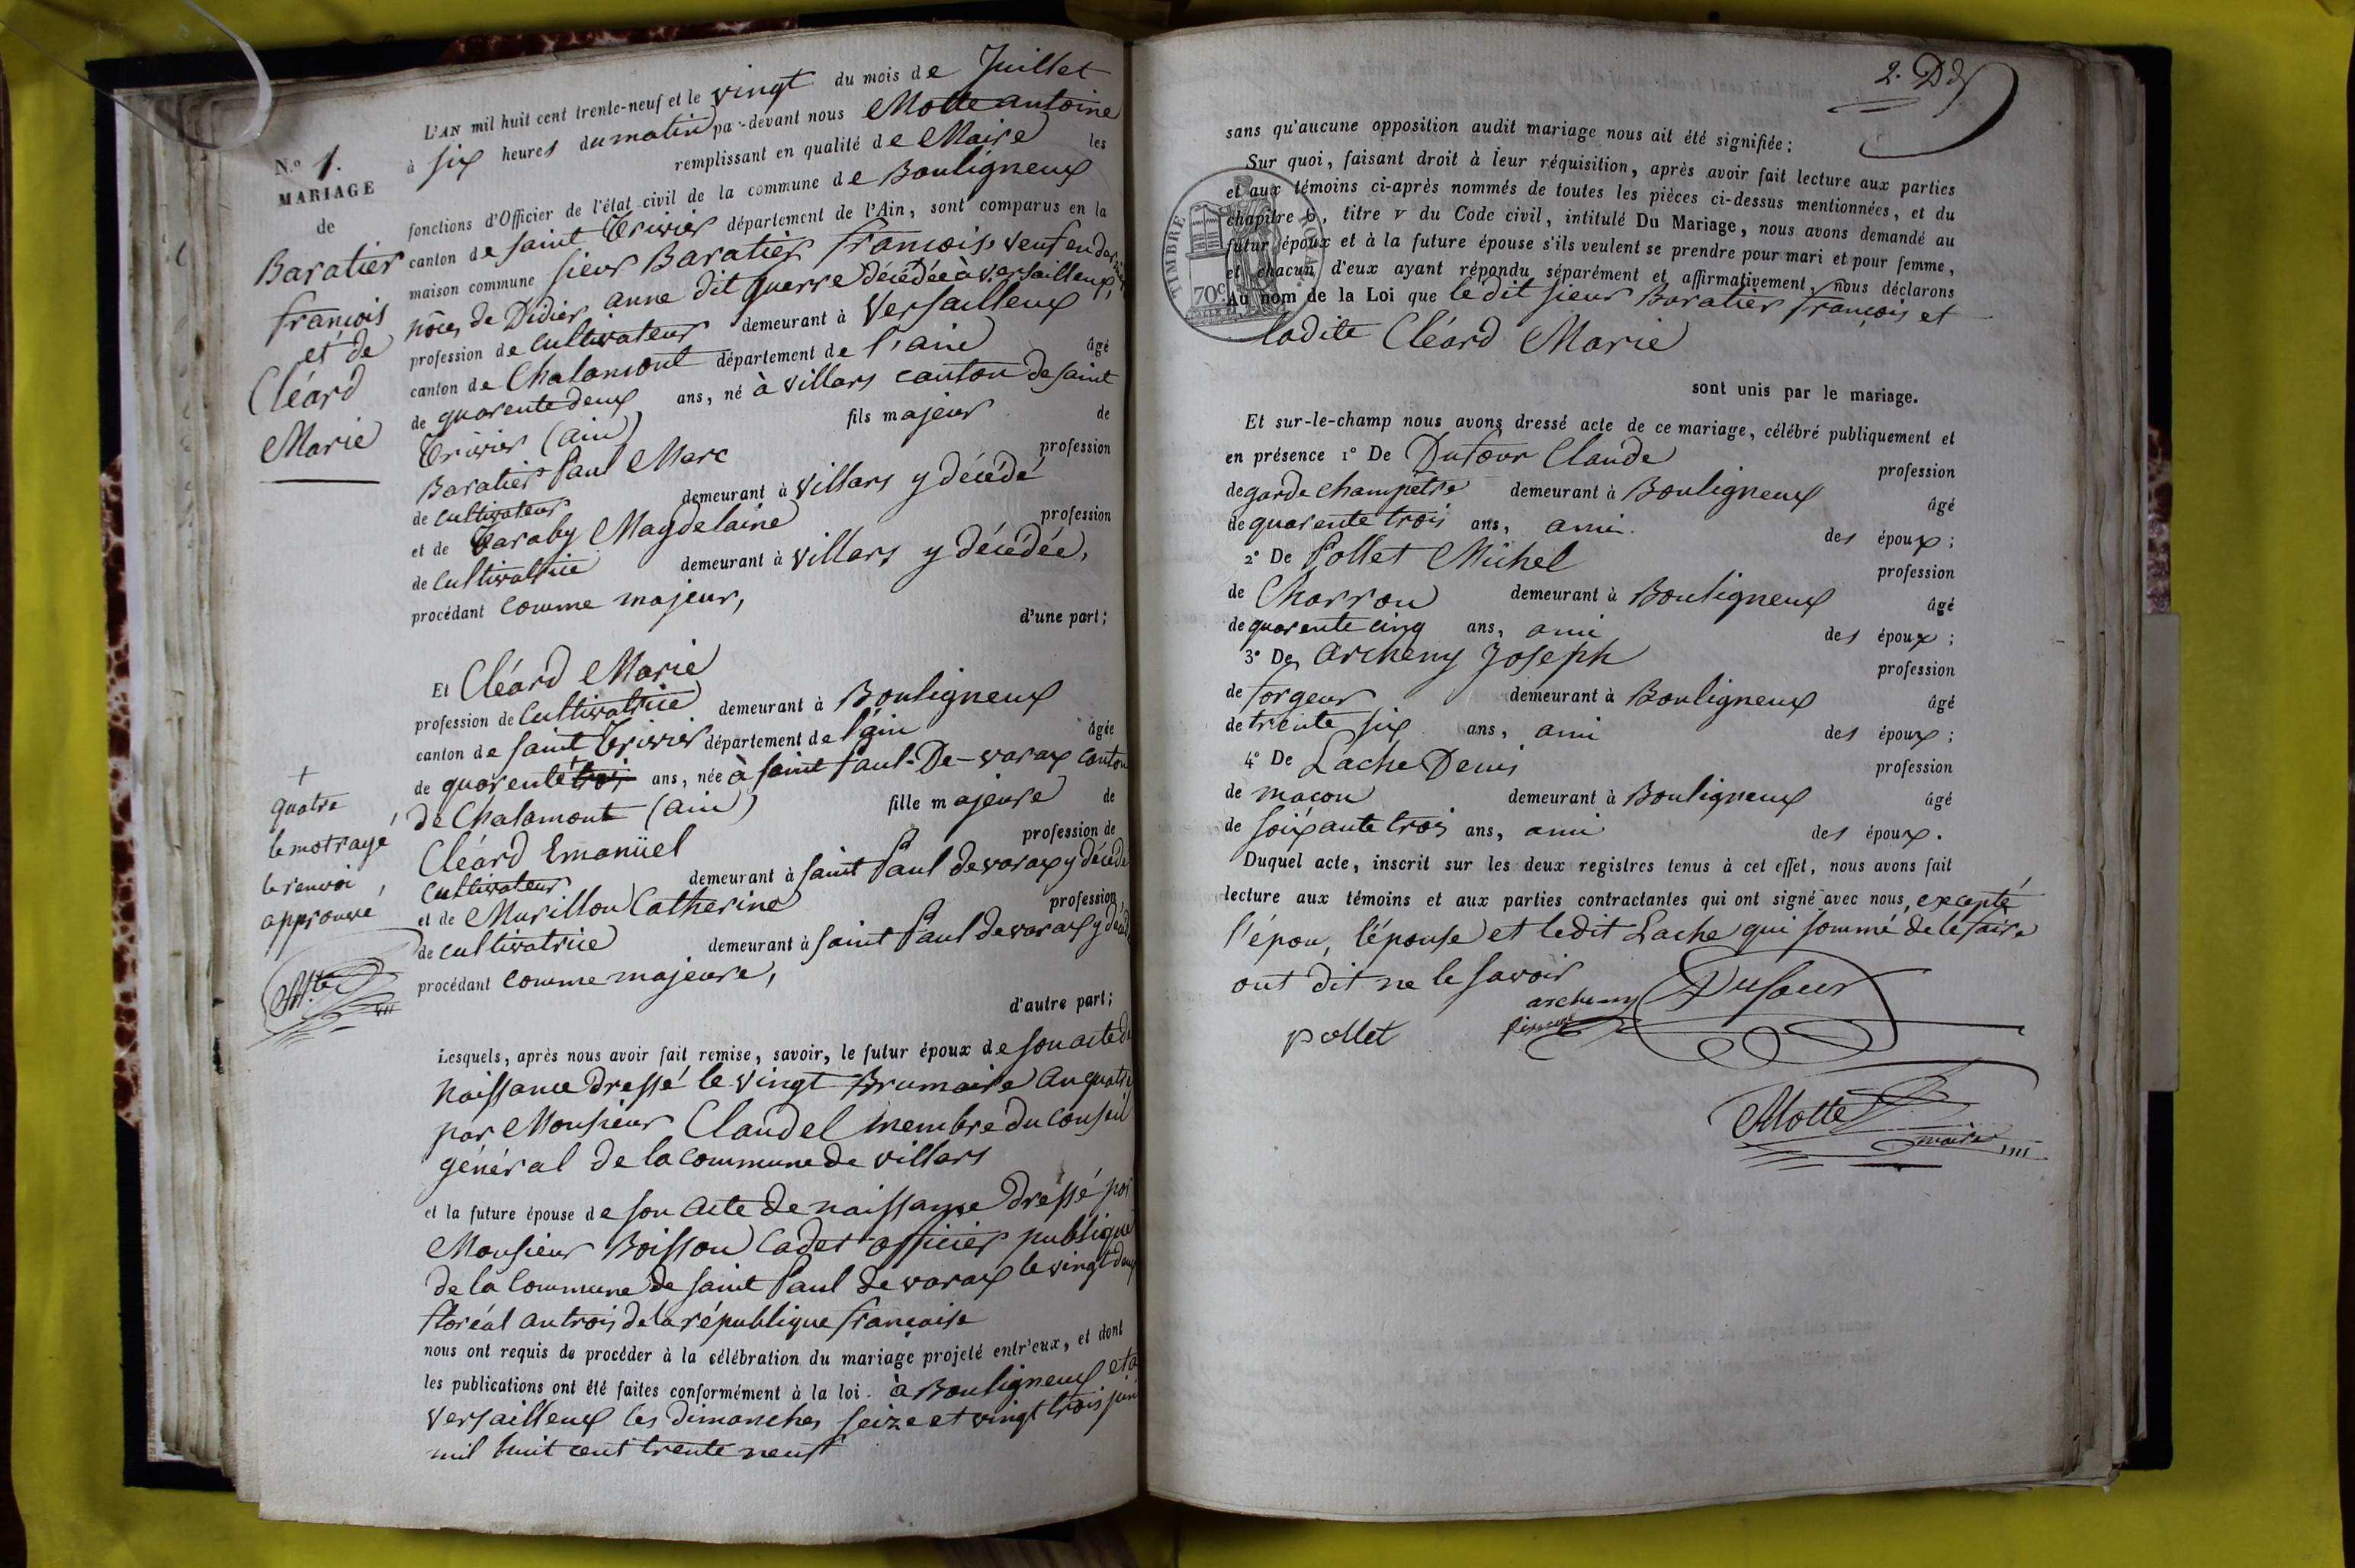 N.º 1.
MARIAGE
de
Baratier
françois
et de
Cléard
Marie
L'AN mil huit cent trente-neuf et le vingt du mois de Juillet
à six heures du matin par-devant nous Motte antoine
remplissant en qualité de Maire les
fonctions d'Officier de l'état civil de la commune de Bouligneux
canton de saint Trivier département de l'Ain, sont comparus en la
maison commune sieur Baratier françois veuf en
de Didier anne dit guerre décédée à Versailleux,
profession de cultivateur demeurant à Versailleux
canton de Chalamont département de l'ain âgé
de quarente deux ans, né à villars canton de saint
Trivier (ain) fils majeur de
Baratier Paul Marc profession
de cultivateur demeurant à villars y décédé
et de Taraby Magdelaine profession
de cultivatrice demeurant à villars y décédée,
procédant comme majeur,
d'une part;
Et Cléard Marie
profession de cultivatrice demeurant à Bouligneux
canton de saint Trivier département de l'ain âgée
de quarente trois ans, née à saint Paul-De-varax canton
de Chalamont (ain) fille majeure de
Cléard Emanüel profession de
cultivateur demeurant à saint Paul de varax y décédé
et de Murillon Catherine profession
de cultivatrice demeurant à saint Paul de varax y
procédant comme majeure,
d'autre part;
+
quatre
le mot rayé
le renvoi,
approuvé
Mte
Lesquels, après nous avoir fait remise, savoir, le futur époux de son acte de
naissance dressé le vingt Brumaire an quatre
par Monsieur Claudel membre du conseil
général de la commune de villars
et la future épouse de son acte de naissance dressé par
Monsieur Boisson Cadet officier publique
de la commune de saint Paul de varax le vingt deux
floréal an trois de la république françaisse
nous ont requis de procéder à la célébration du mariage projeté entr'eux, et dont
les publications ont été faites conformément à la loi. à Bouligneux et à
versailleux les dimanches seize et vingt trois juin
mil huit cent trente neuf
2. Dd
sans qu'aucune opposition audit mariage nous ait été signifiée;
Sur quoi, faisant droit à leur réquisition, après avoir fait lecture aux parties
et aux témoins ci-après nommés de toutes les pièces ci-dessus mentionnées, et du
chapitre 6, titre v du Code civil, intitulé Du Mariage, nous avons demandé au
futur époux et à la future épouse s'ils veulent se prendre pour mari et pour femme,
et chacun d'eux ayant répondu séparément et affirmativement, nous déclarons
Au nom de la Loi que ledit sieur Baratier françois et
ladite Cléard Marie
TIMBRE ROYAL
70c
sont unis par le mariage.
Et sur-le-champ nous avons dressé acte de ce mariage, célébré publiquement et
en présence 1° De Dufour Claude profession
de garde champêtre demeurant à Bouligneux âgé
de quarente trois ans, ami des époux;
2° De Pollet Michel profession
de Charron demeurant à Bouligneux âgé
de quarente cinq ans, ami des époux;
3° De Archeny Joseph profession
de forgeur demeurant à Bouligneux âgé
de trente six ans, ami des époux;
4° De Lache Denis profession
de maçon demeurant à Bouligneux âgé
de soixante trois ans, ami des époux.
Duquel acte, inscrit sur les deux registres tenus à cet effet, nous avons fait
lecture aux témoins et aux parties contractantes qui ont signé avec nous, excepté
l'épou, l'épouse et ledit Lache qui sommé de le faire
ont dit ne le savoir
archeny Dufour
pollet
Motte
maire